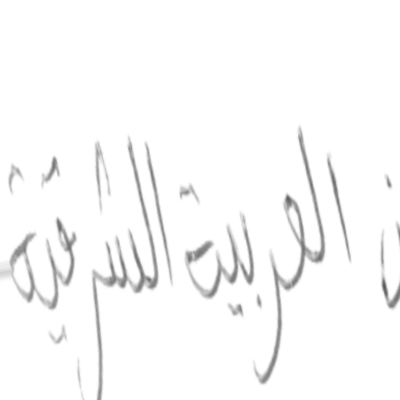 العربية الشرقية